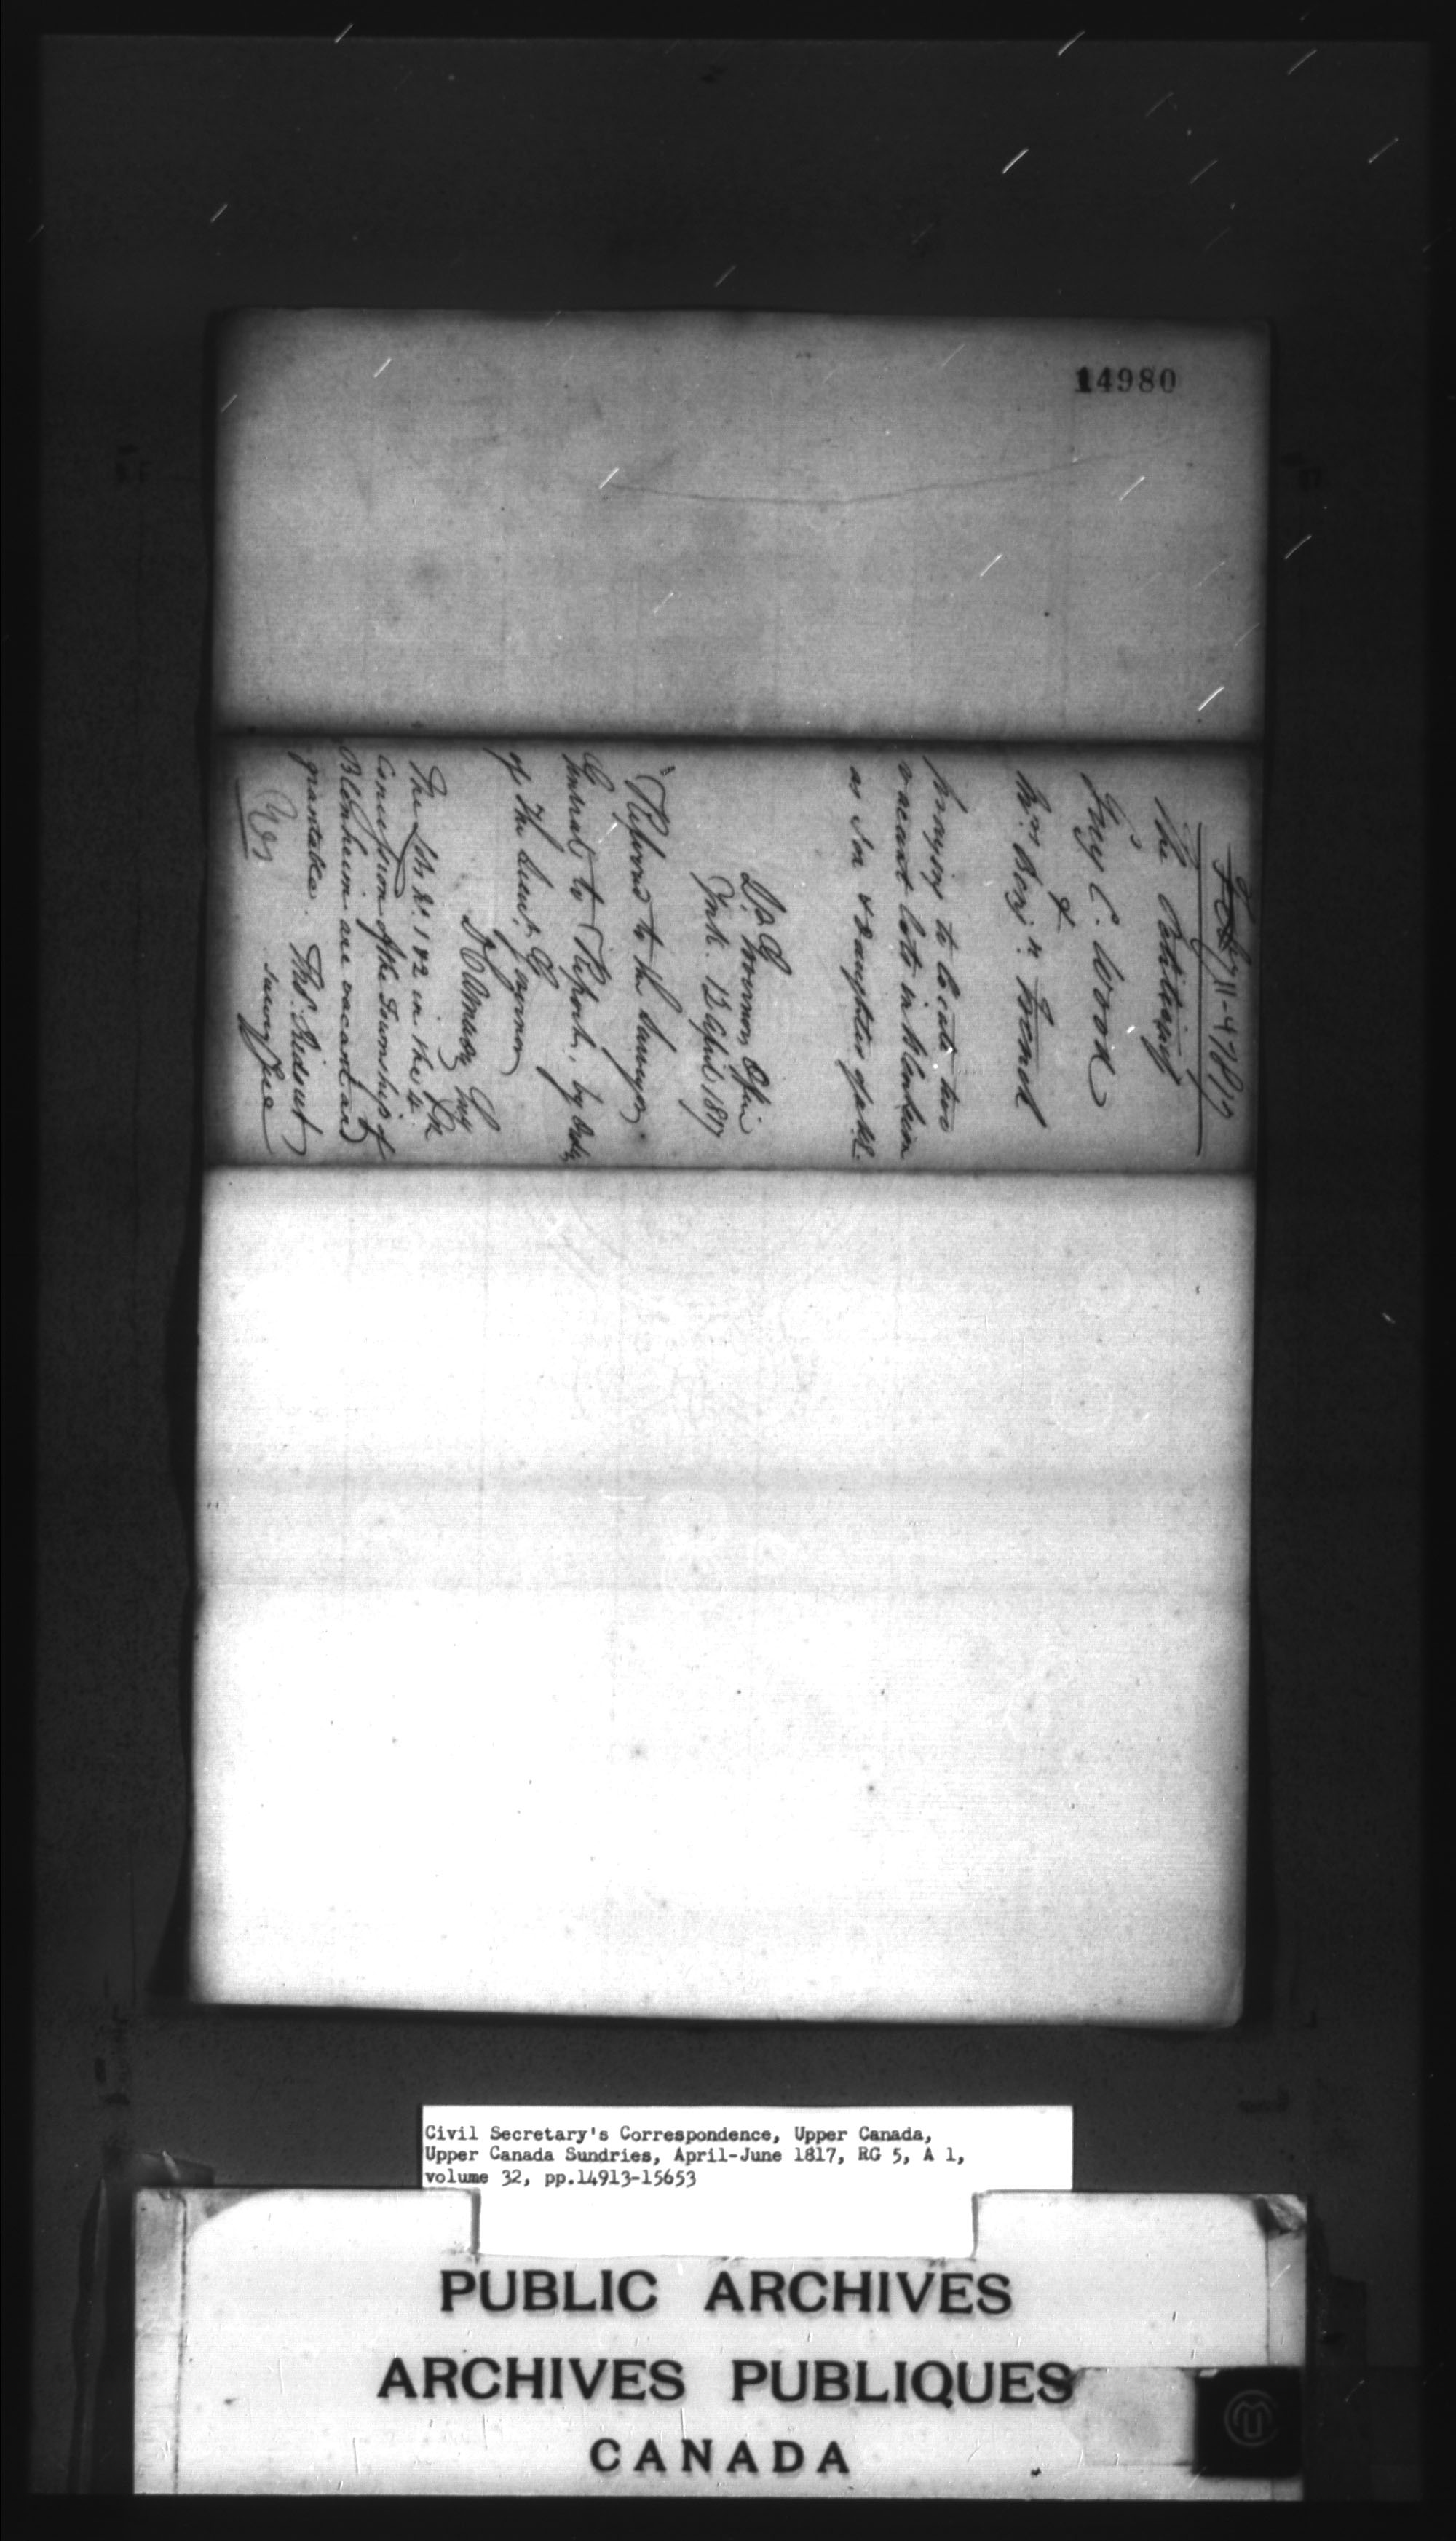 14980
The Petition of
Guy C. Wood
&
Mrs Benj: n French
praying to locate two
vacant lots in Blenheim
as Son & Daughter of
Governors Office
York. 12 April 1817
Referred to the Surveyor
General to Report, by Order
of the Lieut. Governor
D Cameron
The Lots No. 1 & 2 in the 4
Concession of the Township of
Blenheim are vacant and
grantable. Thos. Ridout
Survey Gen
Civil Secretary's Correspondence, Upper Canada,
Upper Canada Sundries, April-June 1817, RG 5, A 1,
volume 32, pp.14913-15653
PUBLIC ARCHIVES
ARCHIVES PUBLIQUES
CANADA